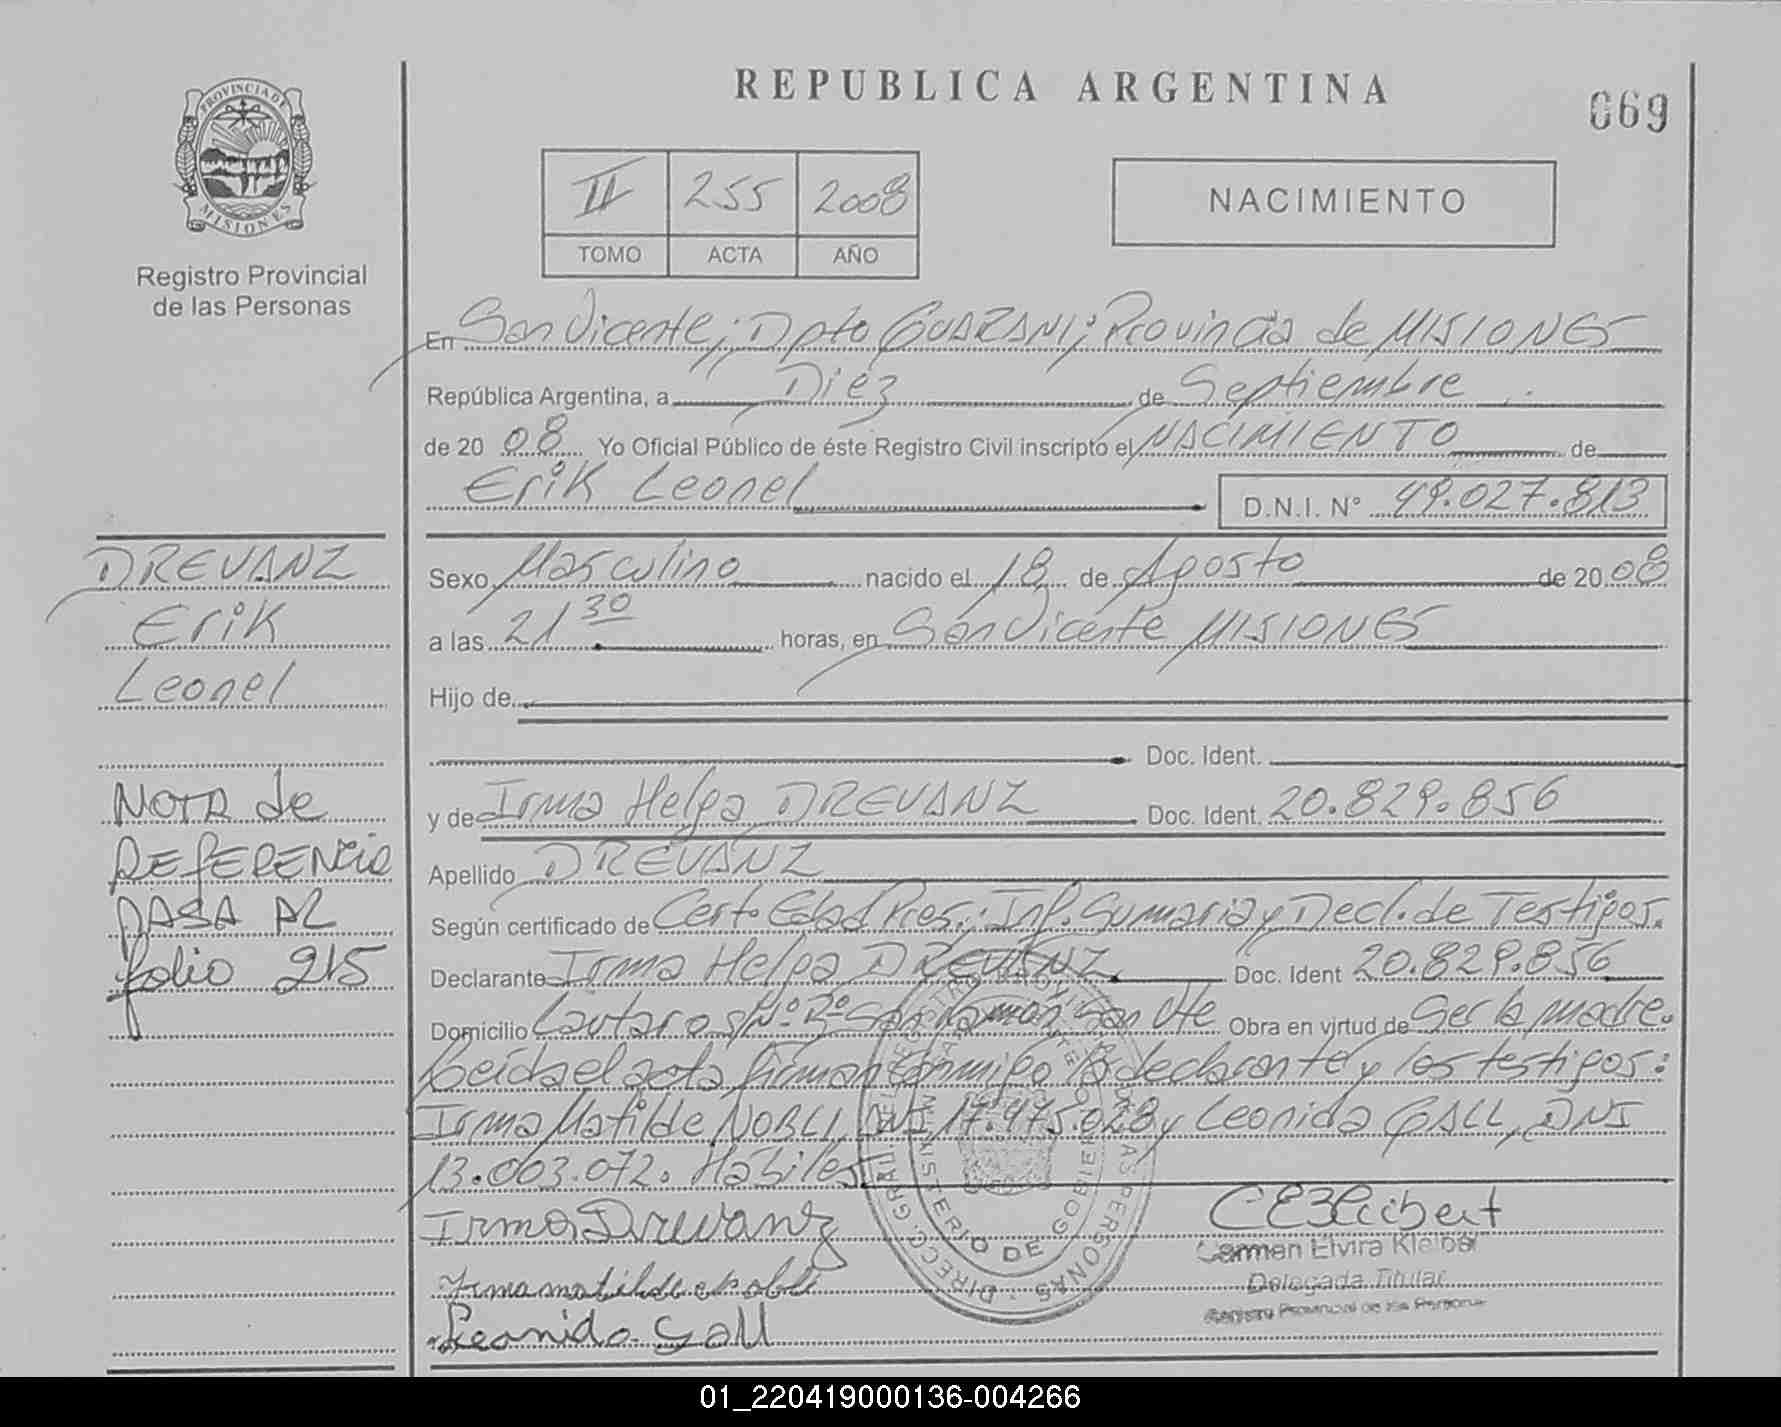 REPUBLICA ARGENTINA
069
PROVINCIA DE
MISIONES
Registro Provincial
de las Personas
II 255 2008
TOMO ACTA AÑO
NACIMIENTO
En San Vicente; Dpto GUARANI; Provincia de MISIONES
República Argentina, a Diez de Septiembre
de 20 08 Yo Oficial Público de éste Registro Civil inscripto el NACIMIENTO de
Erik Leonel D.N.I. N° 49.027.813
DREVANZ
Erik
Leonel
NOTA de
REFERENCIA
PASA AL
folio 215
Sexo Masculino nacido el 18 de Agosto de 20 08
a las 21 30 horas, en San Vicente MISIONES
Hijo de
Doc. Ident.
y de Irma Helga DREVANZ Doc. Ident. 20.829.856
Apellido DREVANZ
Según certificado de Cert. Edad Pres.; Inf. Sumaria y Decl. de Testigos.
Declarante Irma Helga DREVANZ Doc. Ident 20.829.856
Domicilio Lautaro San Ramón San Vte Obra en virtud de Ser la madre.
Leída el acta firman conmigo la declarante y los testigos:
Irma Matilde NOBLI, DNI 17.475.028 y Leonida GALL, DNI
13.003.072. Hábiles
Irma Drevanz
Irma matilde nobli
Leonida Gall
Carmen Elvira
Delegada Titular
Registro Provincial de las Personas
MINISTERIO DE GOBIERNO
01_220419000136-004266